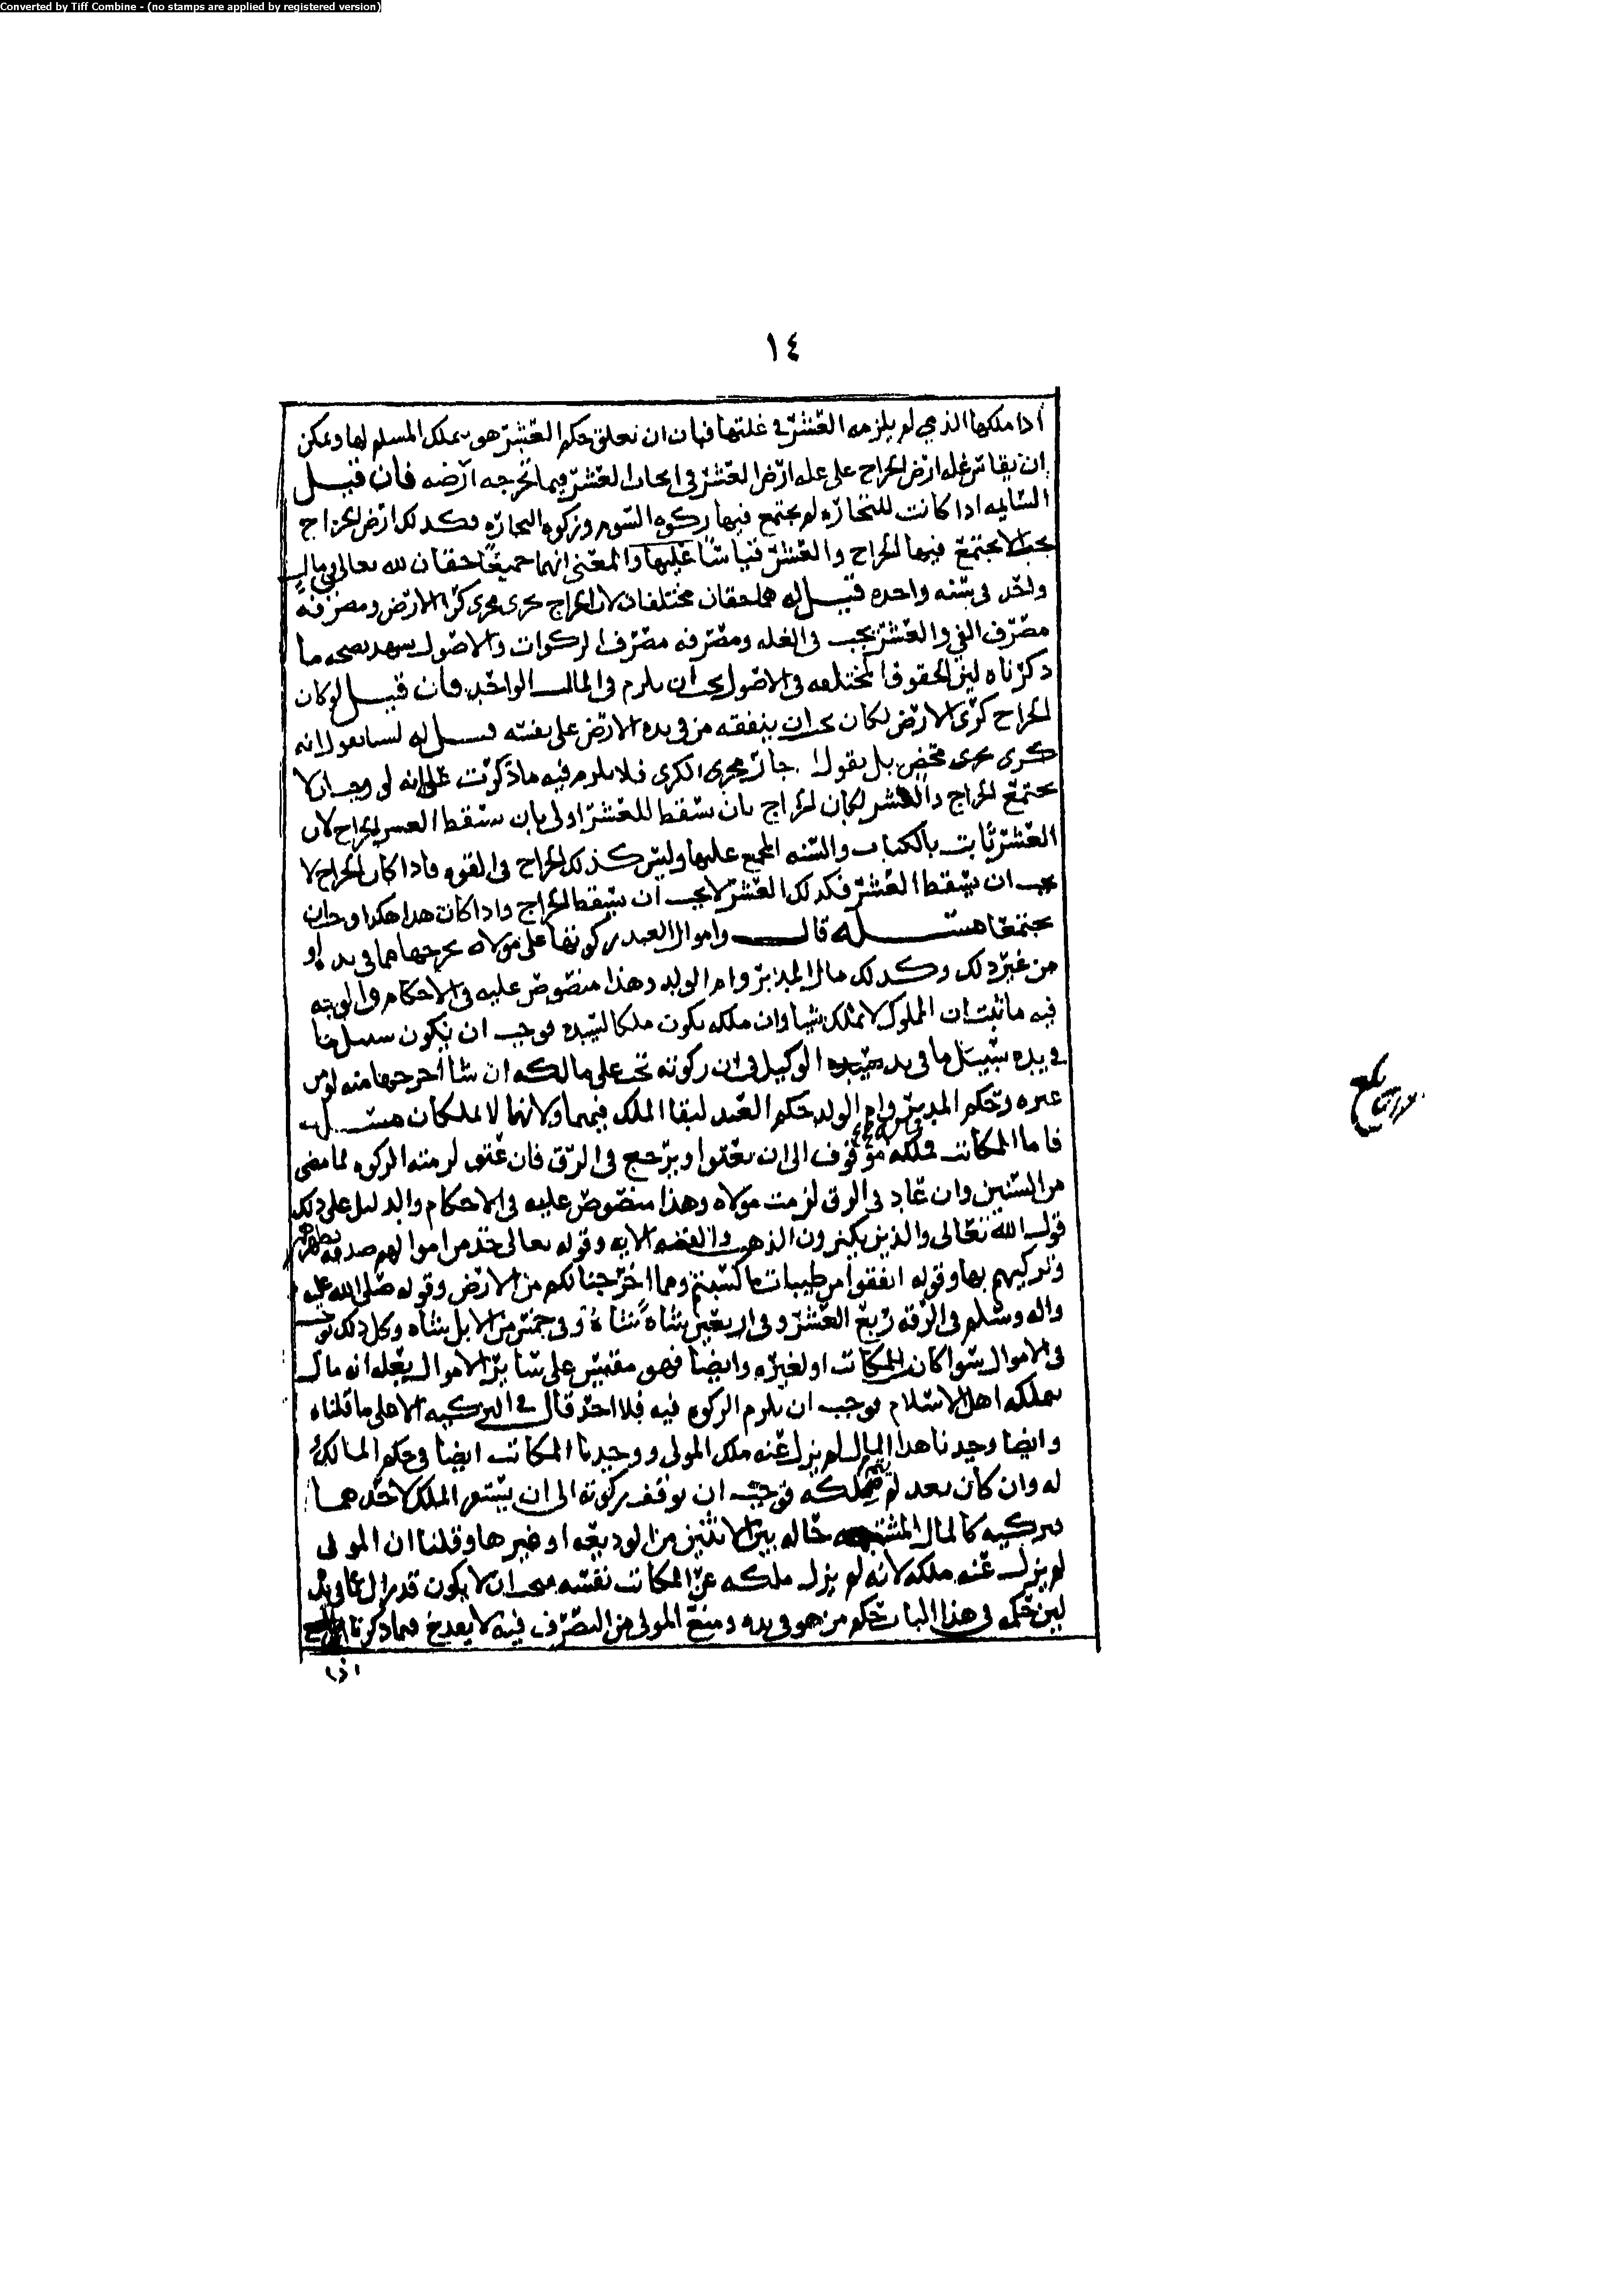 Converted by Tiff Combine - (no stamps are applied by registered version)
١٤
اذا ملكها الذمي لم يلزمه العشر في غلتها فبان ان تعلق حكم العشر هو بملك المسلم لها ويمكن
ان يقاس غله ارض الخراج على غله ارض العشر في ايجاب العشر فيما تخرجه ارضه فان قيل
السايمه اذا كانت للتجاره لم يجتمع فيها زكوه السوم وزكوه التجاره فكذلك ارض الخراج
يجب الا يجتمع فيها الخراج والعشر قياسًا عليها والمعنى انهما جميعًا حقان لله تعالى في مال
واحد في سنه واحده قيل له هما حقان مختلفان لان الخراج يجري مجرى كرا الارض ومصرفه
مصرف الفي والعشر يجب في الغله ومصرفه مصرف الزكوات والاصول يشهد بصحه ما
ذكرناه لان الحقوق المختلفه في الاصول يجب ان يلزم في المال الواحد فان قيل لو كان
الخراج كرى الارض لكان يجب ان ينفقه من في يده الارض على نفسه قيل له لسنا نقول انه
كرى مجرى محض بل نقول جار مجرى الكرى فلا يلزم فيه ما ذكرت على انه لو وجب ان لا
يجتمع الخراج والعشر لكان الخراج بان يسقط للعشر اولى بان يسقط العشر للخراج لان
العشر ثابت بالكتاب والسنه المجمع عليها وليس كذلك الخراج في القوه فاذا كان الخراج لا
يجب ان يسقط العشر فكذلك العشر لا يجب ان يسقط الخراج واذا كان هذا هكذا وجب ان
يجتمعا مسئله قال واموال العبد زكوتها على مولاه يخرجها مما في يده او
من غير ذلك وكذلك مال المدبر وام الولد وهذا منصوص عليه في الاحكام والوجه
فيه ما ثبت ان المملوك لا يملك شيا وان ملكه يكون ملكا لسيده فوجب ان يكون سبيل ما
في يده سبيل ما في يد الوكيل في ان زكوته تجب على مالكه ان شا اخرجها منه او من
غيره وحكم المدبر وام الولد حكم العبد لبقا الملك فيهما ولانهما لا يملكان مسئله
فاما المكاتب فملكه موقوف الى ان يعتق او يرجع في الرق فان عتق لزمته الزكوه لما مضى
من السنين وان عاد في الرق لزمت مولاه وهذا منصوص عليه في الاحكام والدليل على ذلك
قول الله تعالى والذين يكنزون الذهب والفضه الايه وقوله تعالى خذ من اموالهم صدقه تطهرهم
وتزكيهم بها وقوله انفقوا من طيبات ما كسبتم ومما اخرجنا لكم من الارض وقوله صلى الله عليه
واله وسلم في الرقه ربع العشر وفي اربعين شاه شاة وفي خمس من الابل شاه وكل ذلك يوجب
في الاموال سوا كان للمكاتب او لغيره وايضا فهو مقيس على سائر الاموال بعله انه مال
يملكه اهل الاسلام فوجب ان يلزم الزكوه فيه فلا احد قال في التزكيه الا على ما قلناه
وايضا وجدنا هذا المال لم يزل عنه ملك المولى ووجدنا المكاتب ايضا في حكم المالك
له وان كان بعد لم يتم ملكه فوجب ان توقف زكوته الى ان يستقر الملك لاحدهما
بتزكيه كالمال المشتبه حاله بين الاثنين من الوديعه او غيرها وقلنا ان المولى
لم يزل عنه ملكه لانه لم يزل ملكه عن المكاتب نفسه فيجب ان لا يكون قد زال عما في يده
لان حكمه في هذا الباب حكم من هو في يده ومنع المولى من التصرف فيه لا يقدح فيما ذكرنا